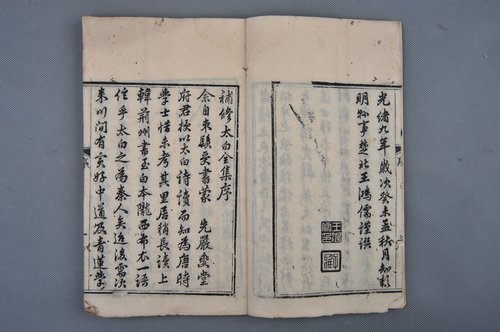 光緒九年歲次癸未孟秋月知彰
明縣事楚北王鴻儒謹譔
補修太白全集序
余自束髮受書蒙 先嚴愛堂
府君授以太白詩讀而知為唐時
學士惜未考其里居稍長讀上
韓荊州書至白本隴西布衣一語
信乎太白之為秦人矣近後需次
来川間有友好中道及青蓮學